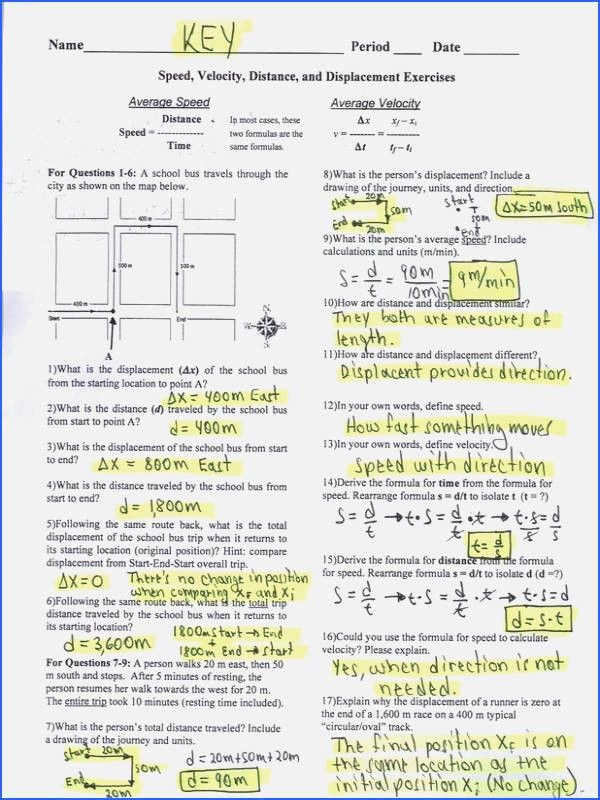 Name KEY Period Date
Speed, Velocity, Distance, and Displacement Exercises
Average Speed
Distance
Speed = -------------
Time
In most cases, these
two formulas are the
same formulas.
Average Velocity
Δx xf – xi
v = ------- = ---------
Δt tf – ti
For Questions 1-6: A school bus travels through the
city as shown on the map below.
400 m
500 m
500 m
400 m
Start
End
A
1)What is the displacement (Δx) of the school bus
from the starting location to point A?
Δx = 400m East
2)What is the distance (d) traveled by the school bus
from start to point A?
d = 400m
3)What is the displacement of the school bus from start
to end? Δx = 800m East
4)What is the distance traveled by the school bus from
start to end?
d = 1,800m
5)Following the same route back, what is the total
displacement of the school bus trip when it returns to
its starting location (original position)? Hint: compare
displacement from Start-End-Start overall trip.
Δx = 0 There's no change in position
when comparing xF and xi
6)Following the same route back, what is the total trip
distance traveled by the school bus when it returns to
its starting location?
d = 3,600m
1800m start → End
+
1800m End → start
For Questions 7-9: A person walks 20 m east, then 50
m south and stops. After 5 minutes of resting, the
person resumes her walk towards the west for 20 m.
The entire trip took 10 minutes (resting time included).
7)What is the person's total distance traveled? Include
a drawing of the journey and units.
Start 20m
50m
End
20m
d = 20m+50m+20m
d = 90m
8)What is the person's displacement? Include a
drawing of the journey, units, and direction.
Start 20m
50m
End 20m
Start
50m
End
Δx=50m south
9)What is the person's average speed? Include
calculations and units (m/min).
S = d/t = 90m/10min = 9m/min
10)How are distance and displacement similar?
They both are measures of
length.
11)How are distance and displacement different?
Displacent provides direction.
12)In your own words, define speed.
How fast something moves
13)In your own words, define velocity.
Speed with direction
14)Derive the formula for time from the formula for
speed. Rearrange formula s = d/t to isolate t (t = ?)
S = d/t → t·S = d/t · t → t·s/s = d/s
t = d/s
15)Derive the formula for distance from the formula
for speed. Rearrange formula s = d/t to isolate d (d =?)
S = d/t → t·S = d/t · t → t·s = d
d = s·t
16)Could you use the formula for speed to calculate
velocity? Please explain.
Yes, when direction is not
needed.
17)Explain why the displacement of a runner is zero at
the end of a 1,600 m race on a 400 m typical
"circular/oval" track.
The final position XF is on
the same location as the
initial position Xi (No change).